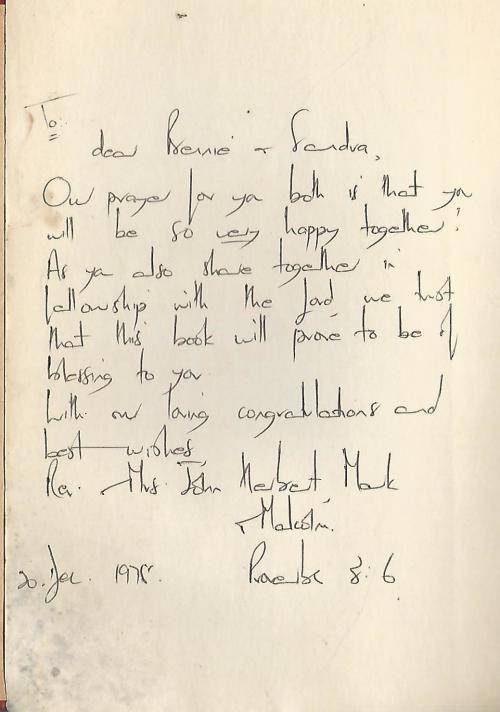 To:
dear Bernie + Sandra,
Our prayer for you both is that you
will be so very happy together!
As you also share together in
fellowship with the Lord we trust
that this book will prove to be of
blessing to you
With our loving congratulations and
best wishes
Rev. Mrs. John Herbert, Mark
Malcolm.
20. Dec. 1975. Proverbs 8:6